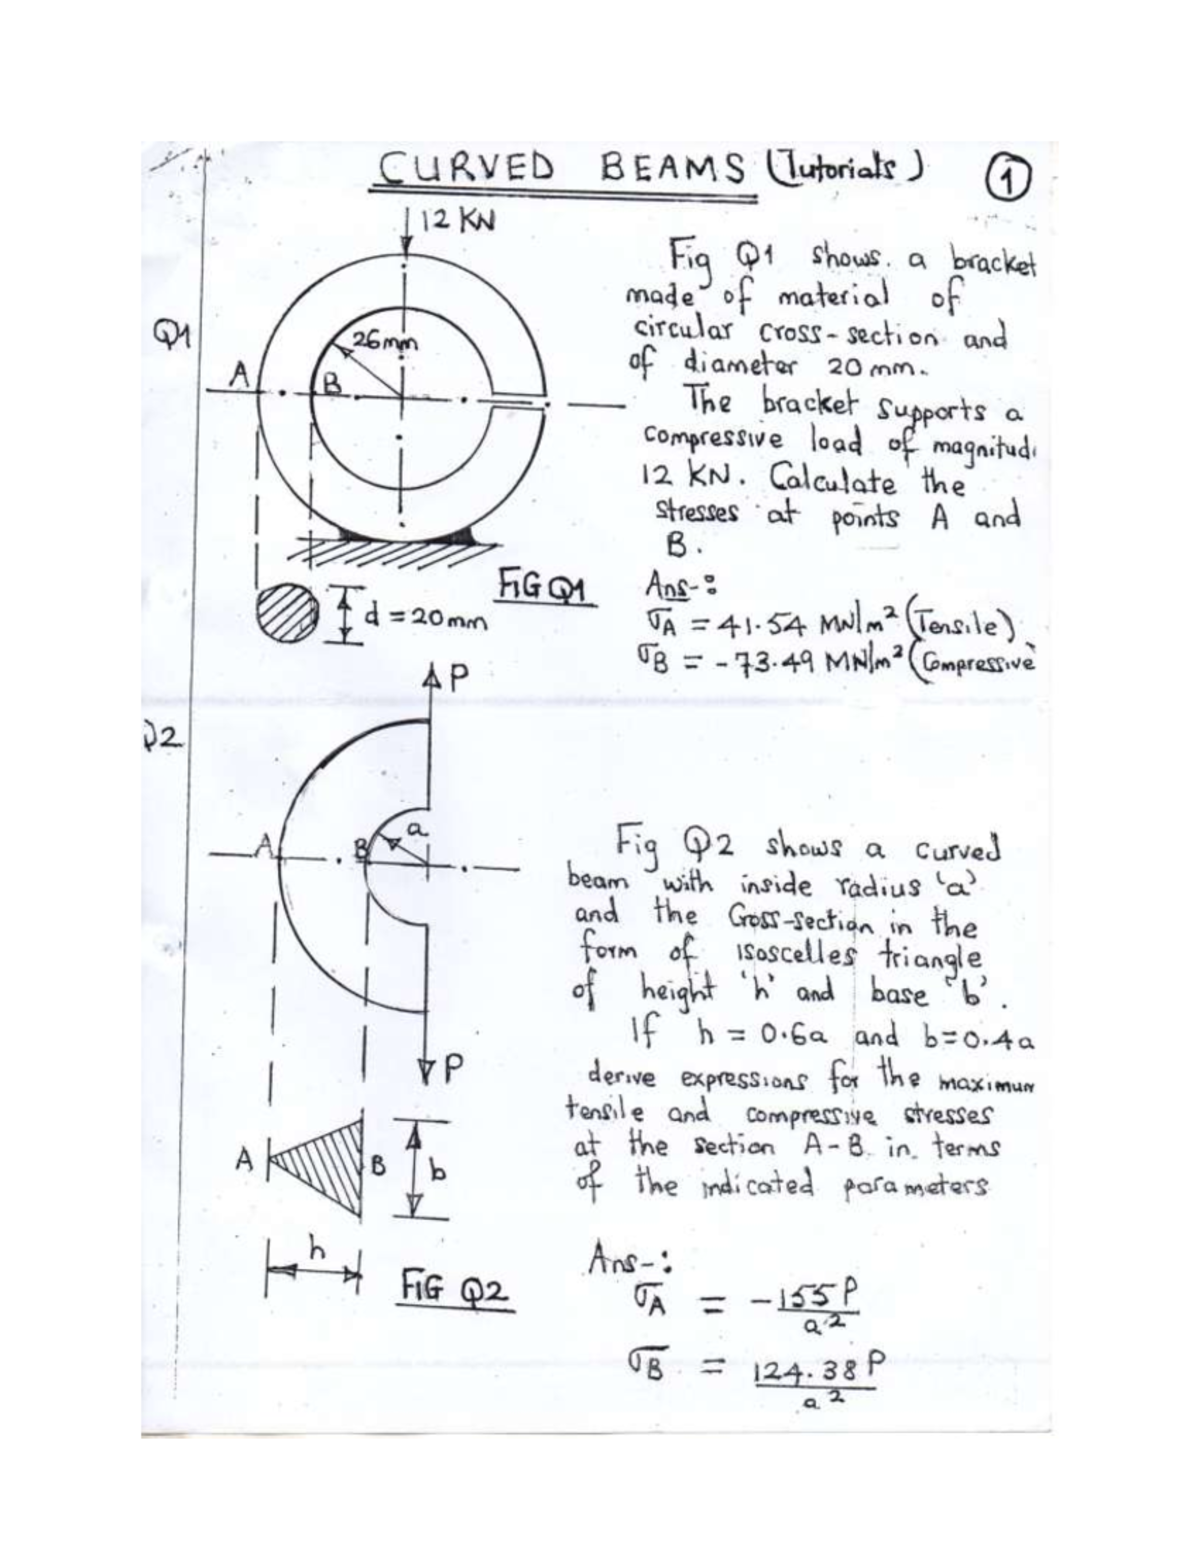 CURVED BEAMS (Tutorials) 1
12 KN
Q1
26mm
A
B
d = 20mm
FIG Q1
Fig Q1 shows a bracket
made of material of
circular cross-section and
of diameter 20 mm.
The bracket supports a
compressive load of magnitud
12 KN. Calculate the
stresses at points A and
B.
Ans-:
σA = 41.54 MN/m² (Tensile)
σB = -73.49 MN/m² (Compressive
Q2
P
a
A
B
P
A
B
b
h
FIG Q2
Fig Q2 shows a curved
beam with inside radius 'a'
and the Cross-section in the
form of isoscelles triangle
of height 'h' and base 'b'.
If h = 0.6a and b=0.4a
derive expressions for the maximum
tensile and compressive stresses
at the section A-B in terms
of the indicated parameters
Ans-:
σA = -155P/a²
σB = 124.38P/a²